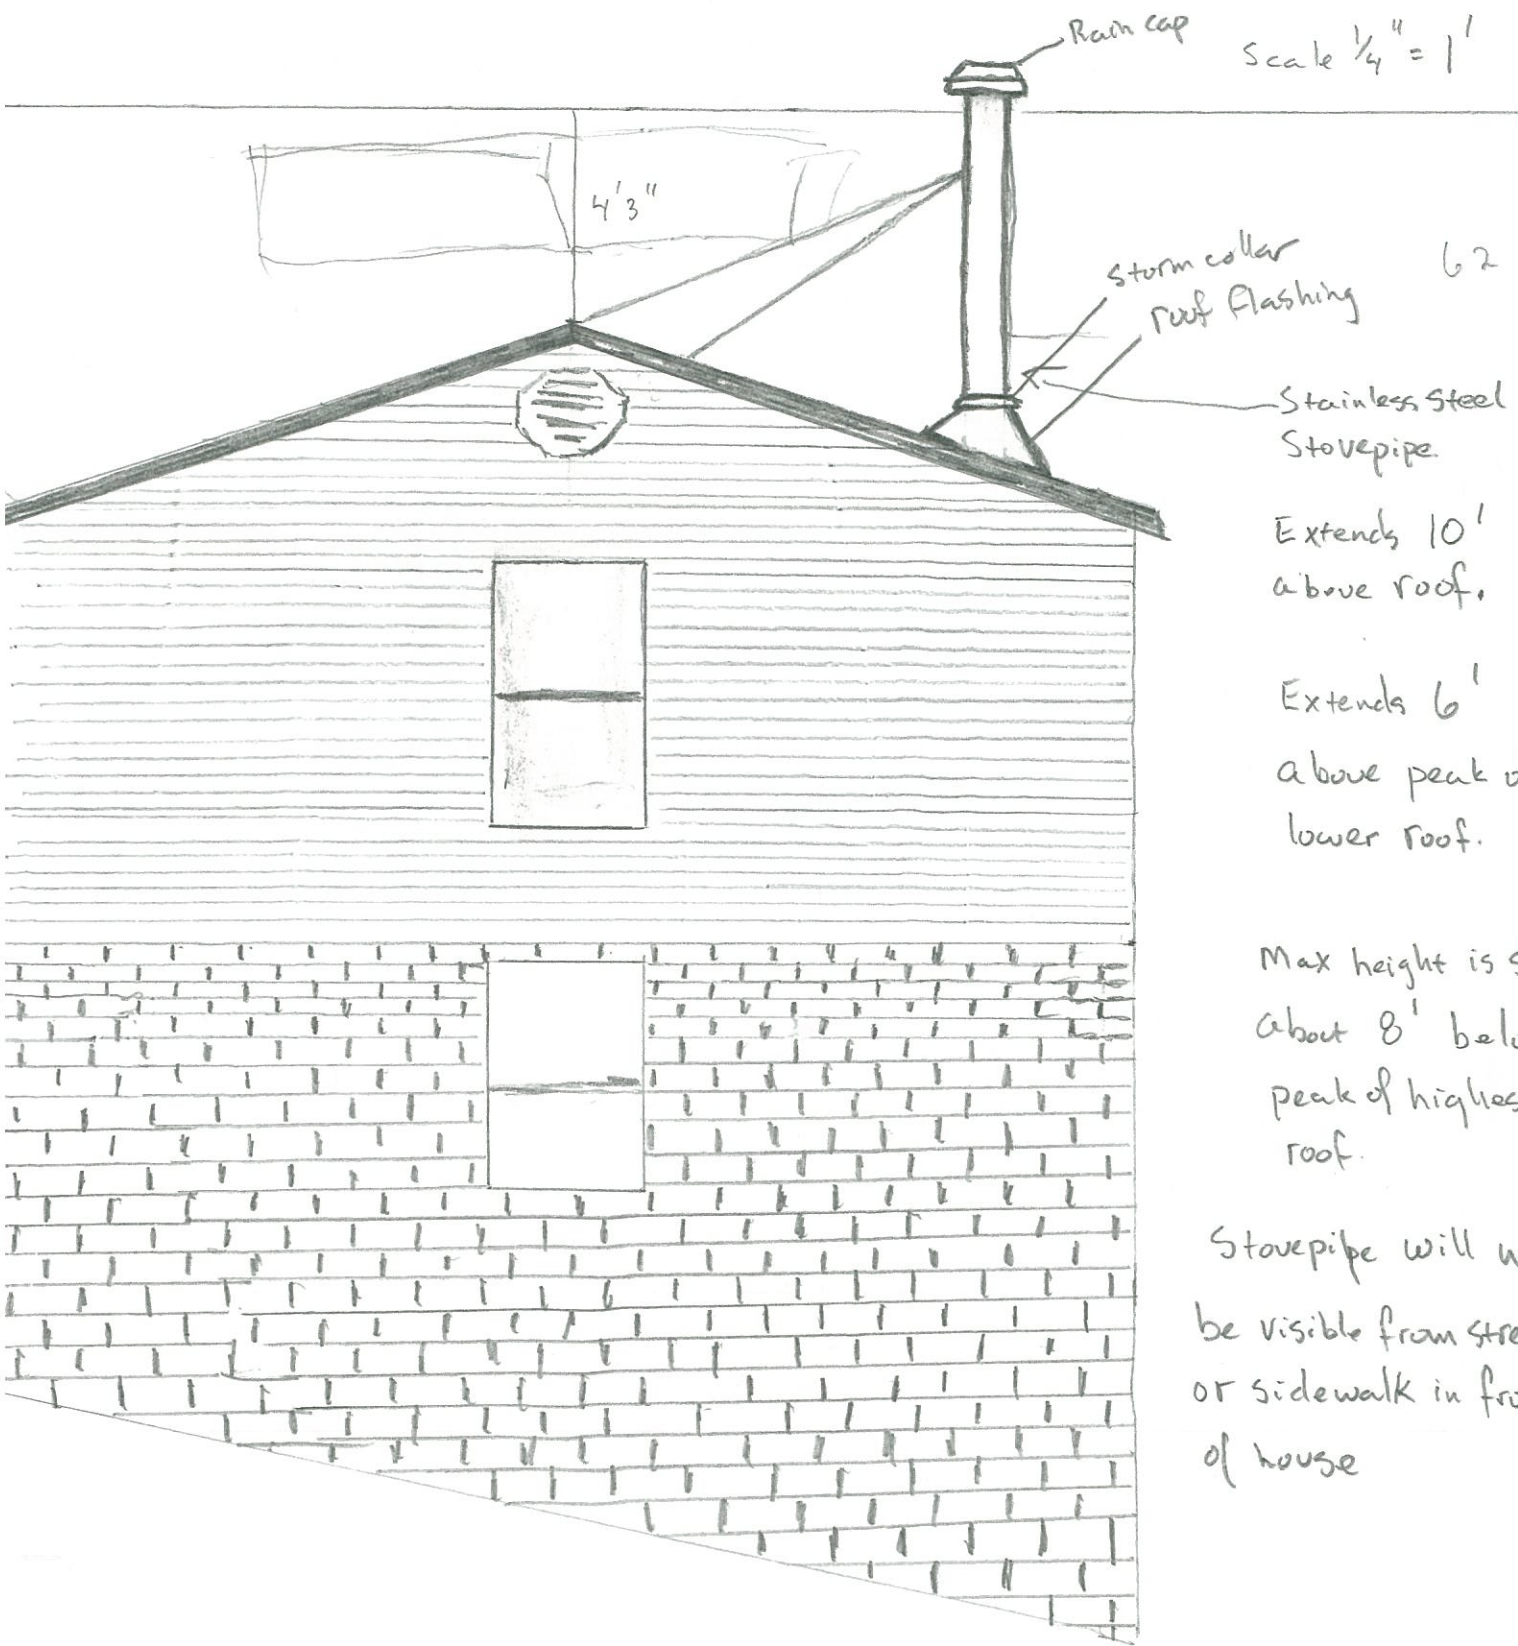 Rain cap
Scale 1/4" = 1'
4'3"
62
Storm collar
roof flashing
Stainless Steel
Stovepipe.
Extends 10'
above roof.
Extends 6'
above peak
lower roof.
Max height is
about 8'
peak of
roof.
Stovepipe will
be visible from
or sidewalk in
of house